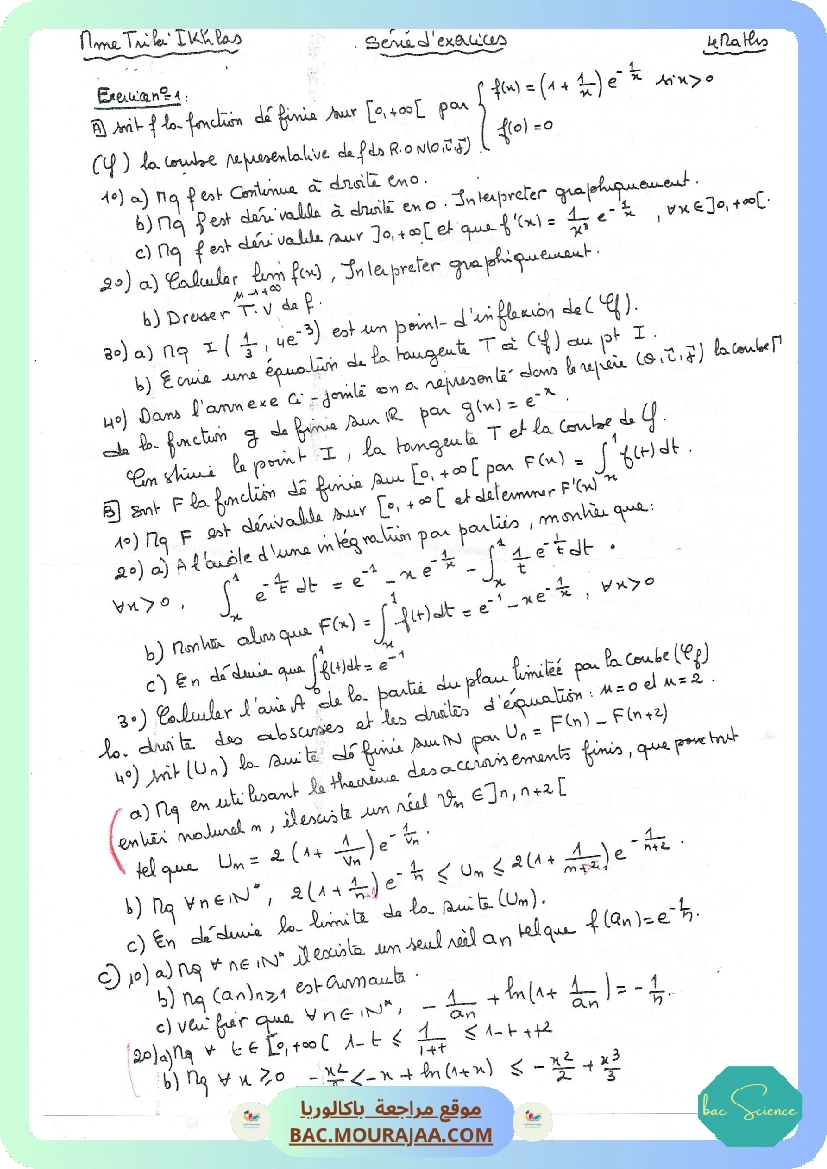 Mme Triki IKhlas Série d'exercices 4Maths
Exercice n°=1:
A) soit f la fonction définie sur [0,+∞[ par { f(x) = (1 + 1/x) e^{-1/x} si x>0
f(0) = 0
(𝒞f) la courbe représentative de f ds R.O.N (O,i⃗,j⃗)
1°) a) Mq f est Continue à droite en 0.
b) Mq f est dérivable à droite en 0. Interpreter graphiquement.
c) Mq f est dérivable sur ]0,+∞[ et que f'(x) = 1/x³ e^{-1/x}, ∀x∈]0,+∞[.
2°) a) Calculer lim f(x), Interpreter graphiquement.
x→+∞
b) Dresser T.V de f.
3°) a) Mq I(1/3, 4e^{-3}) est un point d'inflexion de (𝒞f).
b) Ecrire une équation de la tangente T à (𝒞f) au pt I.
4°) Dans l'annexe ci-jointe on a représenté dans le repère (O,i⃗,j⃗) la courbe Γ
de la fonction g définie sur ℝ par g(x) = e^{-x}.
Construire le point I, la tangente T et la courbe de f.
B) Soit F la fonction définie sur [0,+∞[ par F(x) = ∫_x^1 f(t)dt.
1°) Mq F est dérivable sur [0,+∞[ et déterminer F'(x)
2°) a) A l'aide d'une intégration par parties, montrer que:
∀x>0, ∫_x^1 e^{-1/t} dt = e^{-1} - x e^{-1/x} - ∫_x^1 1/t e^{-1/t} dt.
b) Montrer alors que F(x) = ∫_x^1 f(t)dt = e^{-1} - x e^{-1/x}, ∀x>0
c) En déduire que ∫_0^1 f(t)dt = e^{-1}
3°) Calculer l'aire A de la partie du plan limitée par la courbe (𝒞f)
la droite des abscisses et les droites d'équation: x=0 et x=2.
4°) soit (Un) la suite définie sur ℕ par Un = F(n) - F(n+2)
a) Mq en utilisant le théorème des accroisements finis, que pour tout
entier naturel n, il existe un réel Vn ∈ ]n, n+2[
tel que Un = 2(1 + 1/Vn) e^{-1/Vn}.
b) Mq ∀n∈ℕ*, 2(1 + 1/n) e^{-1/n} ≤ Un ≤ 2(1 + 1/(n+2)) e^{-1/(n+2)}.
c) En déduire la limite de la suite (Un).
C) 1°) a) Mq ∀n∈ℕ* il existe un seul réel an tel que f(an) = e^{-1/n}.
b) Mq (an)n≥1 est croissante.
c) Vérifier que ∀n∈ℕ*, -1/an + ln(1 + 1/an) = -1/n.
2°) a) Mq ∀ t∈[0,+∞[ 1-t ≤ 1/(1+t) ≤ 1-t+t²
b) Mq ∀ x≥0 -x²/2 ≤ -x + ln(1+x) ≤ -x²/2 + x³/3
bac Science
موقع مراجعة باكالوريا
BAC.MOURAJAA.COM